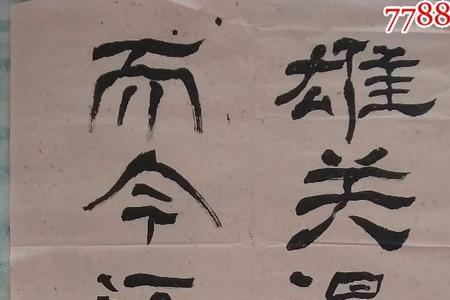 7788
雄关
而今